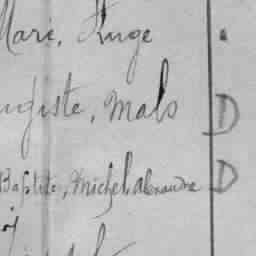 Marie, Ange .
ugiste, Malo D
Baptiste, Michel, alexandre D